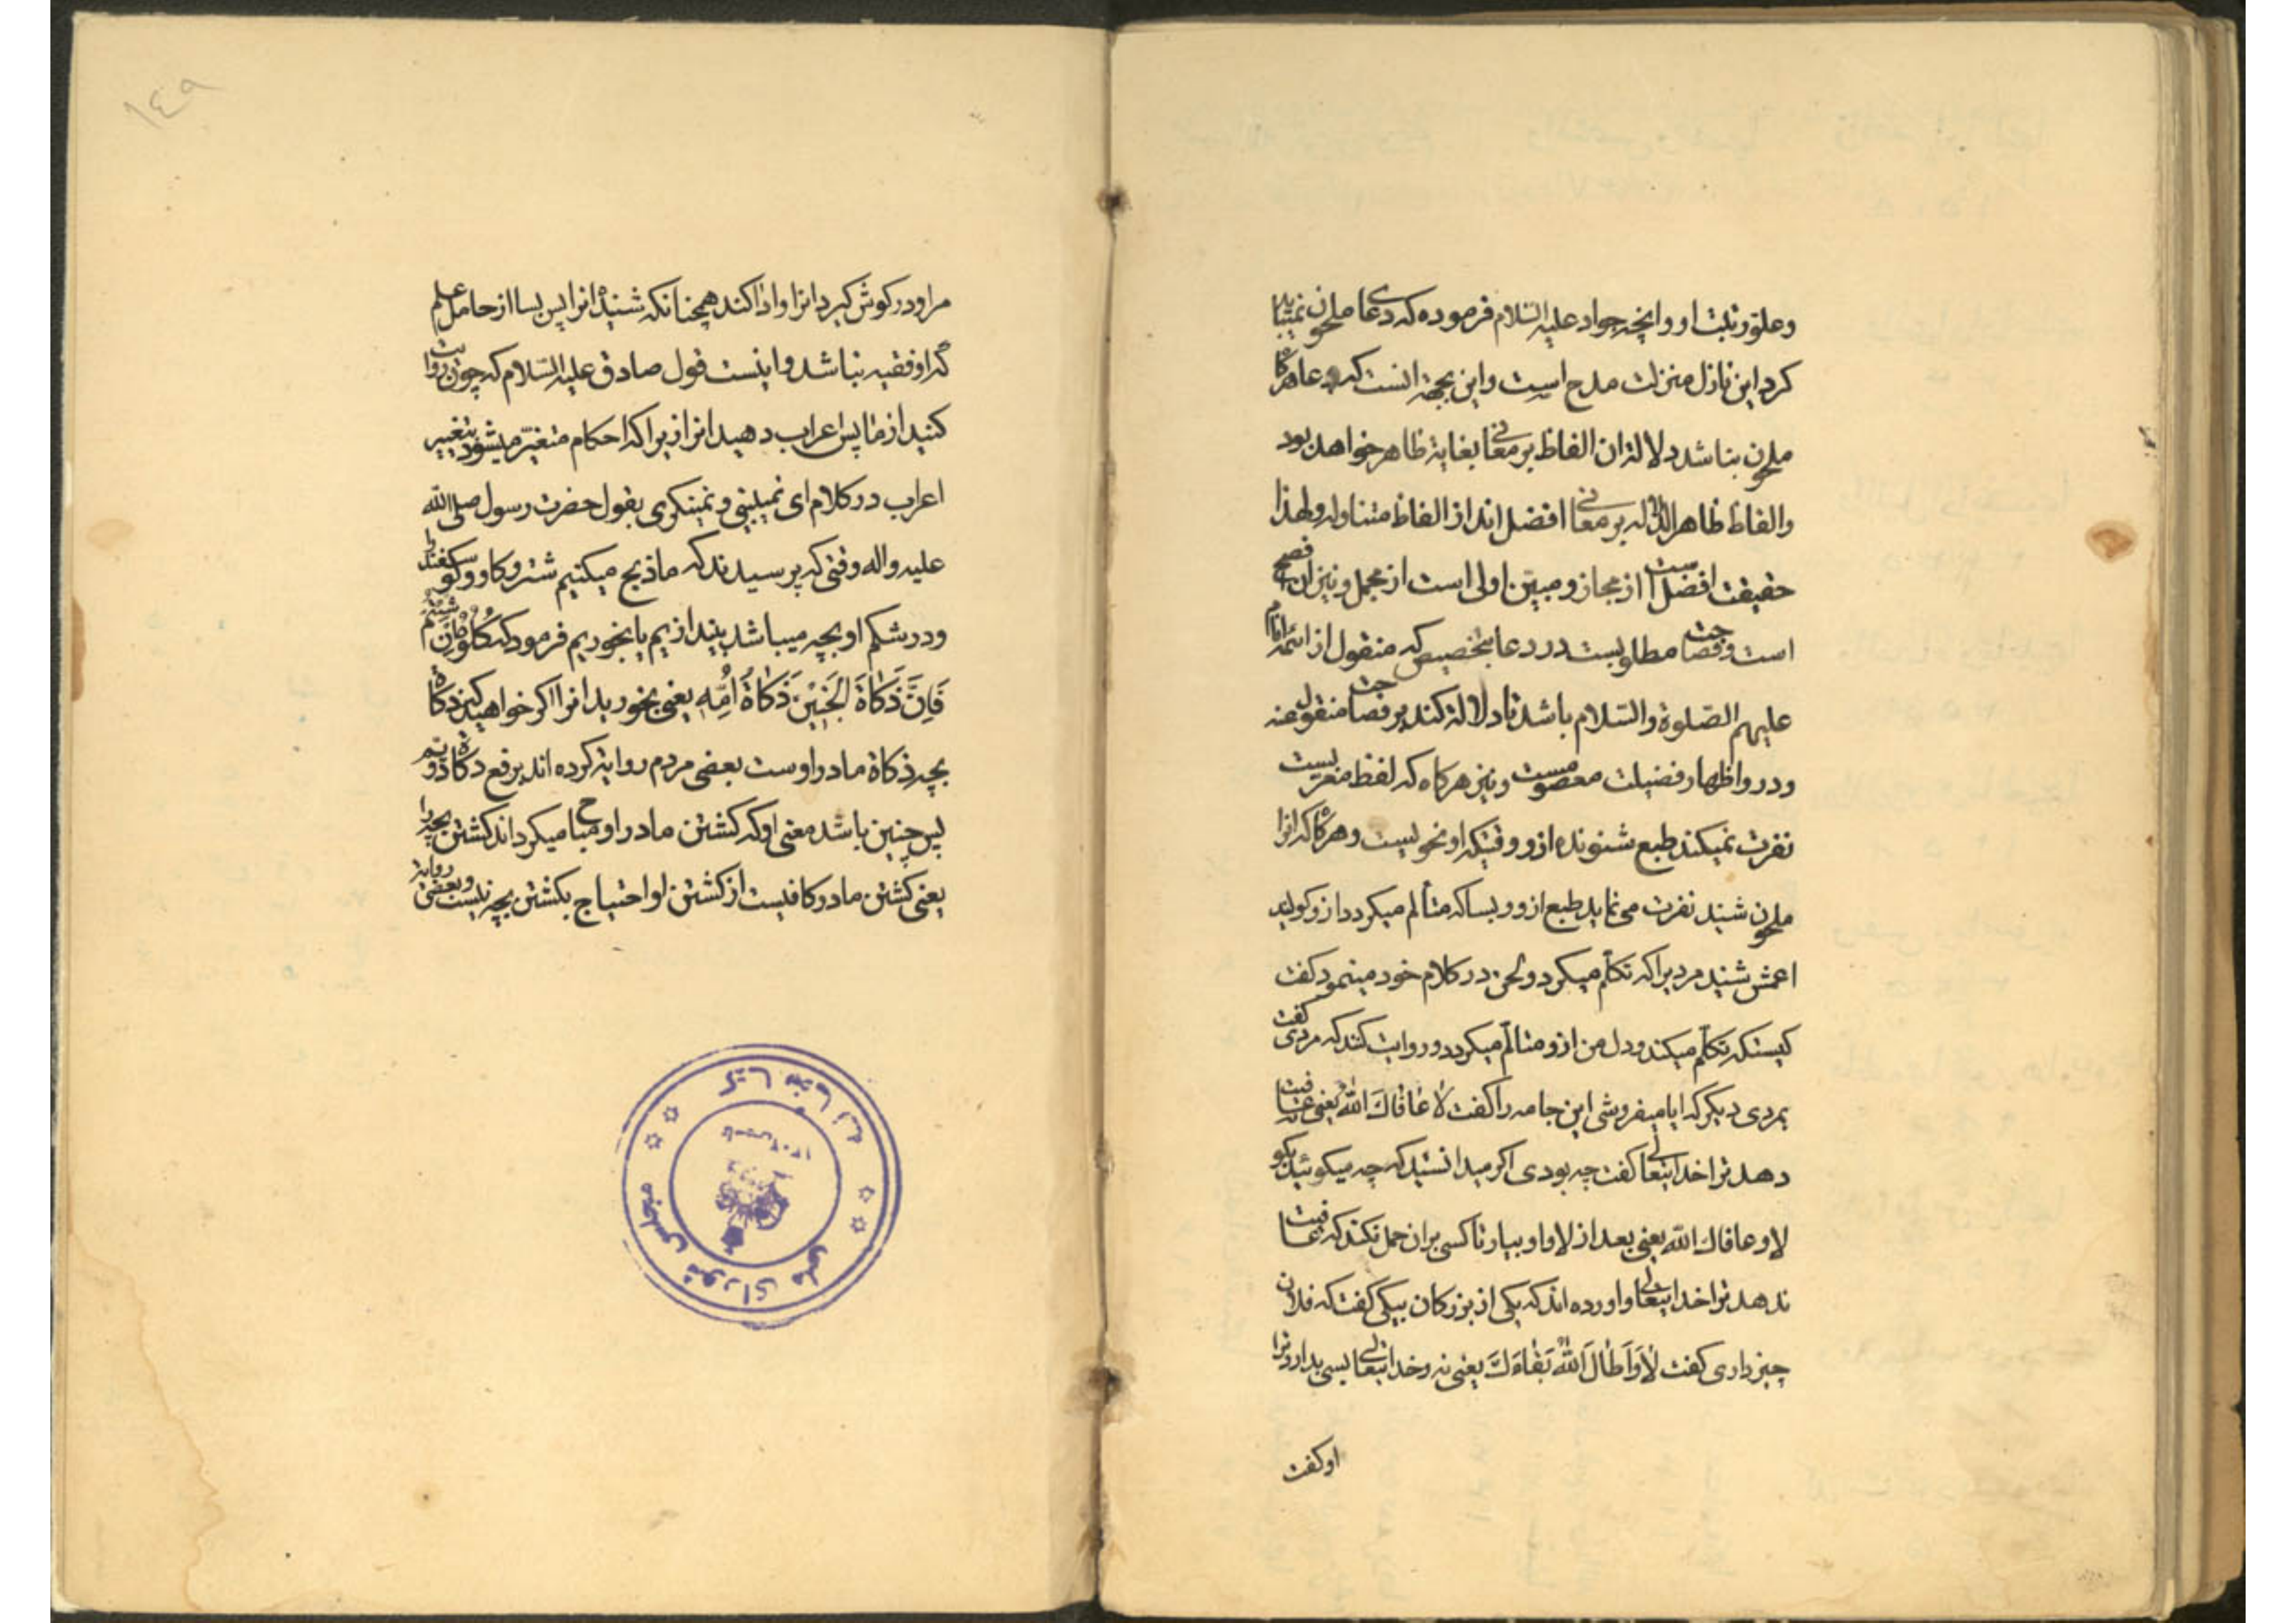 وعلو رتبت او و انچه جواد علیه السلام فرموده که دعای ملحون نمیباید
کرد این نازل منزلت مدح است و این بجهة انست که دعا هرگاه
ملحون نباشد دلالة ان الفاظ بر معانی بغایة ظاهر خواهد بود
والفاظ ظاهر الدلاله بر معانی افضل اند از الفاظ متناوله ولهذا
حقیقت افضل است از مجاز و مبین اولی است از مجمل و نیز ان فصیح
است و فصاحت مطلوبست در دعا بتخصیص که منقول از ائمه انام
علیهم الصلوة والسلام باشد تا دلالة کند بر فصاحت منقول عنه
و درو اظهار فضیلت معصومست و نیز هرکاه که لفظ معربست
نفرت نمیکند طبع شنونده ازو وقتیکه او نحویست و هرکاه که انرا
ملحون شنید نفرت می نماید طبع ازو و بسا که متألم میکردد ازو کویند
اعمش شنید مردیرا که تکلم میکرد و لحن در کلام خود مینمود کفت
کیستکه تکلم میکند و دل من ازو متالم میکردد و روایت کنند که مردی کفت
بمردی دیکر که ایا میفروشی این جامه را کفت لا عافاك الله یعنی عافیت نه
دهد ترا خدایتعالی کفت چه بودی اکر میدانستید که چه میکوئید بکو
لا و عافاك الله یعنی بعد از لا واو بیار تا کسی بران حمل نکند که عافیت
ندهد ترا خدایتعالی و اورده اند که یکی از بزرکان بیکی کفت که فلان
چیز داری کفت لا و اطال الله بقاءك یعنی نه و خدایتعالی بسی بدارد ترا
او کفت
١٤٩
مرا و در کوش کیرد انرا و ادا کند همچنانکه شنیده انرا پس بسا از حامل علم
که او فقیه نباشد و اینست قول صادق علیه السلام که چون روایت
کنید از ما پس اعراب دهید انرا زیرا که احکام متغیر میشود بتغییر
اعراب در کلام ای نمیبینی و نمینکری بقول حضرت رسول صلی الله
علیه واله وقتی که پرسیدند که ما ذبح میکنیم شتر و کاو و کوسفند را
و در شکم او بچه میباشد بیندازیم یا بخوریم فرمود که كُلُوهُ إن شِئتُم
فَاِنَّ ذَكَاةَ الجَنِيْنِ ذَكَاةُ اُمِّهِ یعنی بخورید انرا اکر خواهید که ذکاة
بچه ذکاة مادر اوست بعضی مردم روایة کرده اند برفع ذکاة دویم
پس چنین باشد معنی او که کشتن مادر او مباح میکرداند کشتن بچه را
یعنی کشتن مادر کافیست از کشتن او احتیاج بکشتن بچه نیست و بعضی روایة
کتابخانه
مجلس شورای ملی